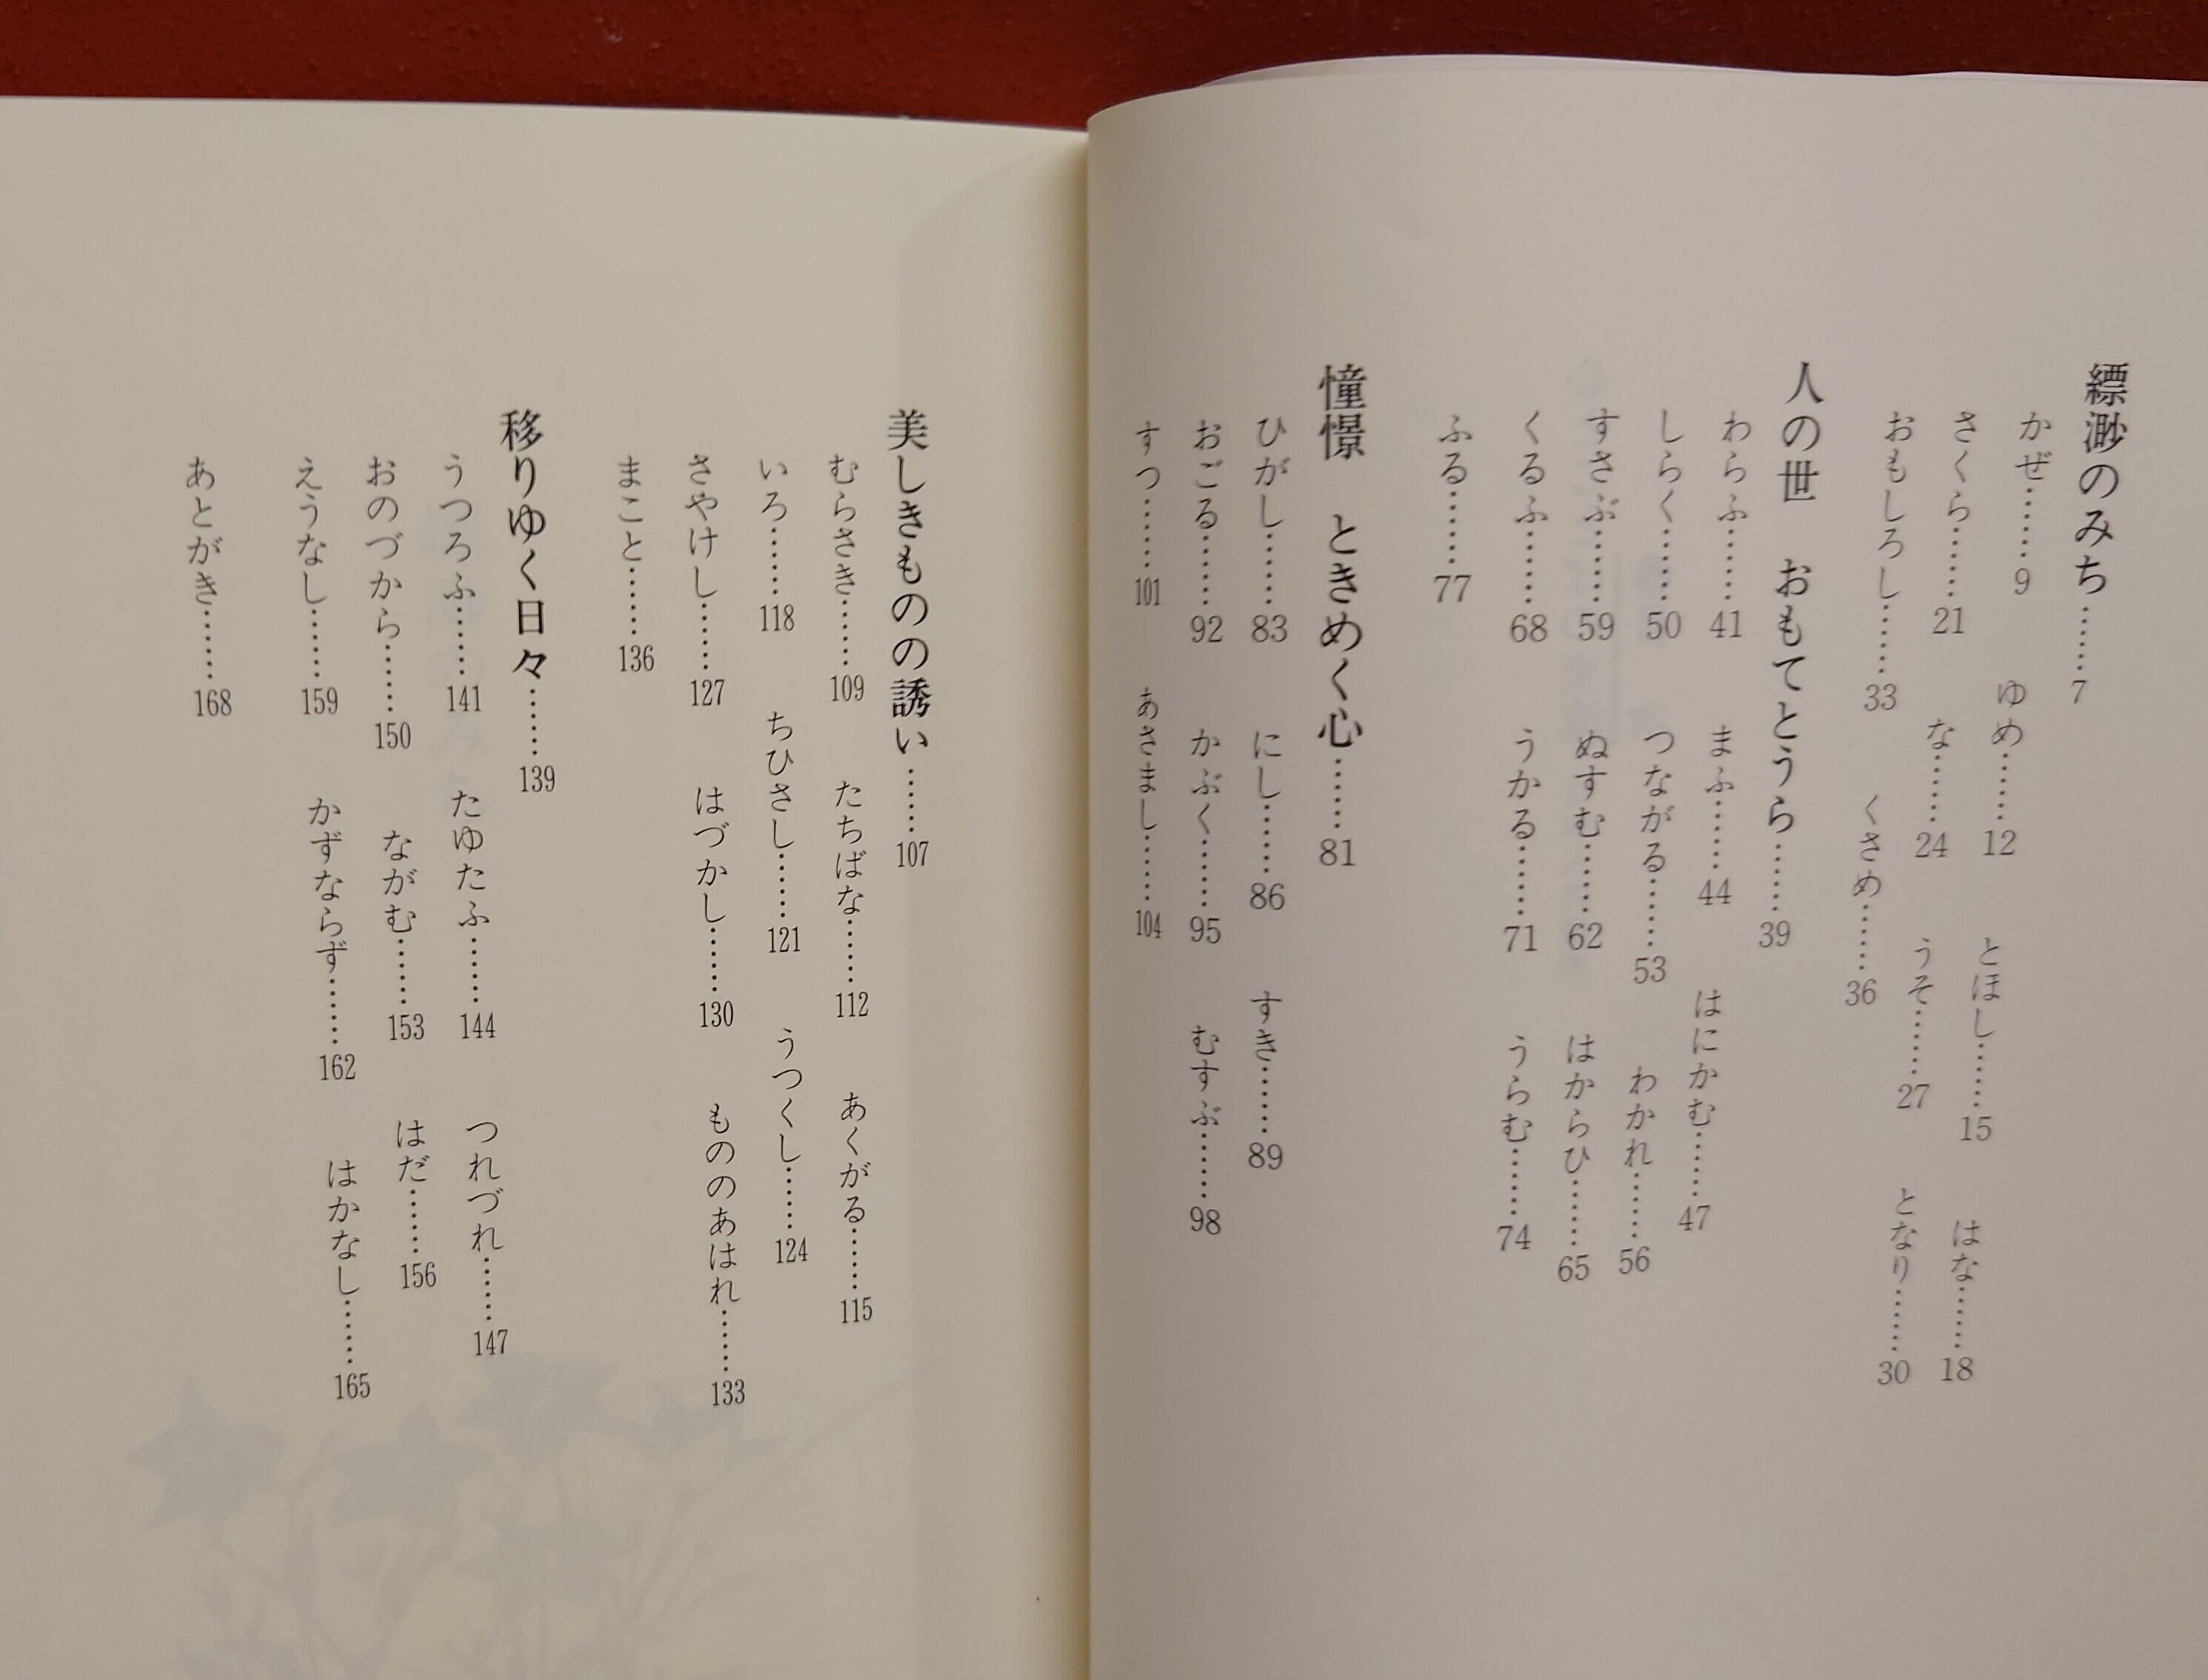 縹渺のみち……7
かぜ……9　ゆめ……12　とほし……15　はな……18
さくら……21　な……24　うそ……27　となり……30
おもしろし……33　くさめ……36
人の世　おもてとうら……39
わらふ……41　まふ……44　はにかむ……47
しらく……50　つながる……53　わかれ……56
すさぶ……59　ぬすむ……62　はからひ……65
くるふ……68　うかる……71　うらむ……74
ふる……77
憧憬　ときめく心……81
ひがし……83　にし……86　すき……89
おごる……92　かぶく……95　むすぶ……98
すつ……101　あさまし……104
美しきものの誘い……107
むらさき……109　たちばな……112　あくがる……115
いろ……118　ちひさし……121　うつくし……124
さやけし……127　はづかし……130　もののあはれ……133
まこと……136
移りゆく日々……139
うつろふ……141　たゆたふ……144　つれづれ……147
おのづから……150　ながむ……153　はだ……156
えうなし……159　かずならず……162　はかなし……165
あとがき……168